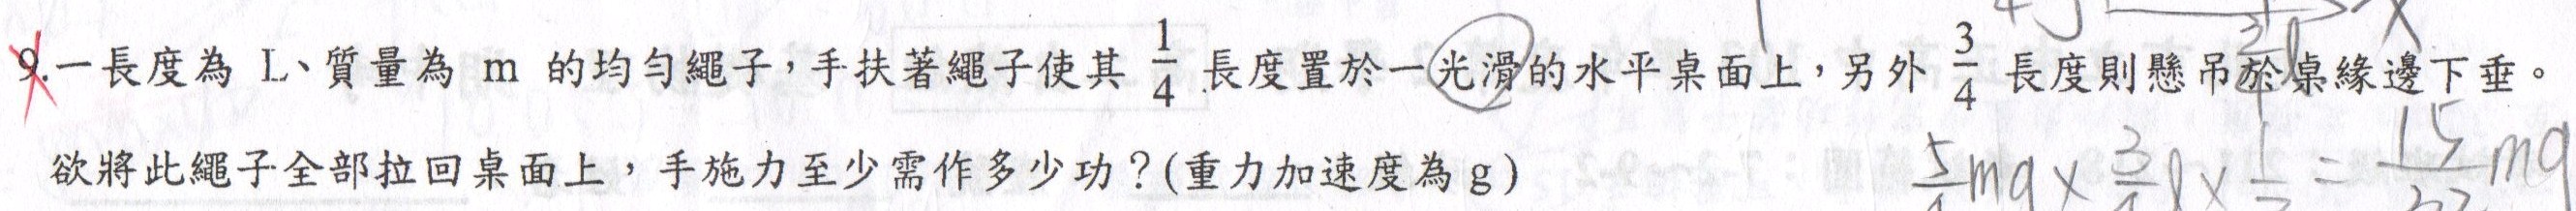 9.一長度為 L、質量為 m 的均勻繩子，手扶著繩子使其 1/4 長度置於一光滑的水平桌面上，另外 3/4 長度則懸吊於桌緣邊下垂。
欲將此繩子全部拉回桌面上，手施力至少需作多少功？(重力加速度為 g)